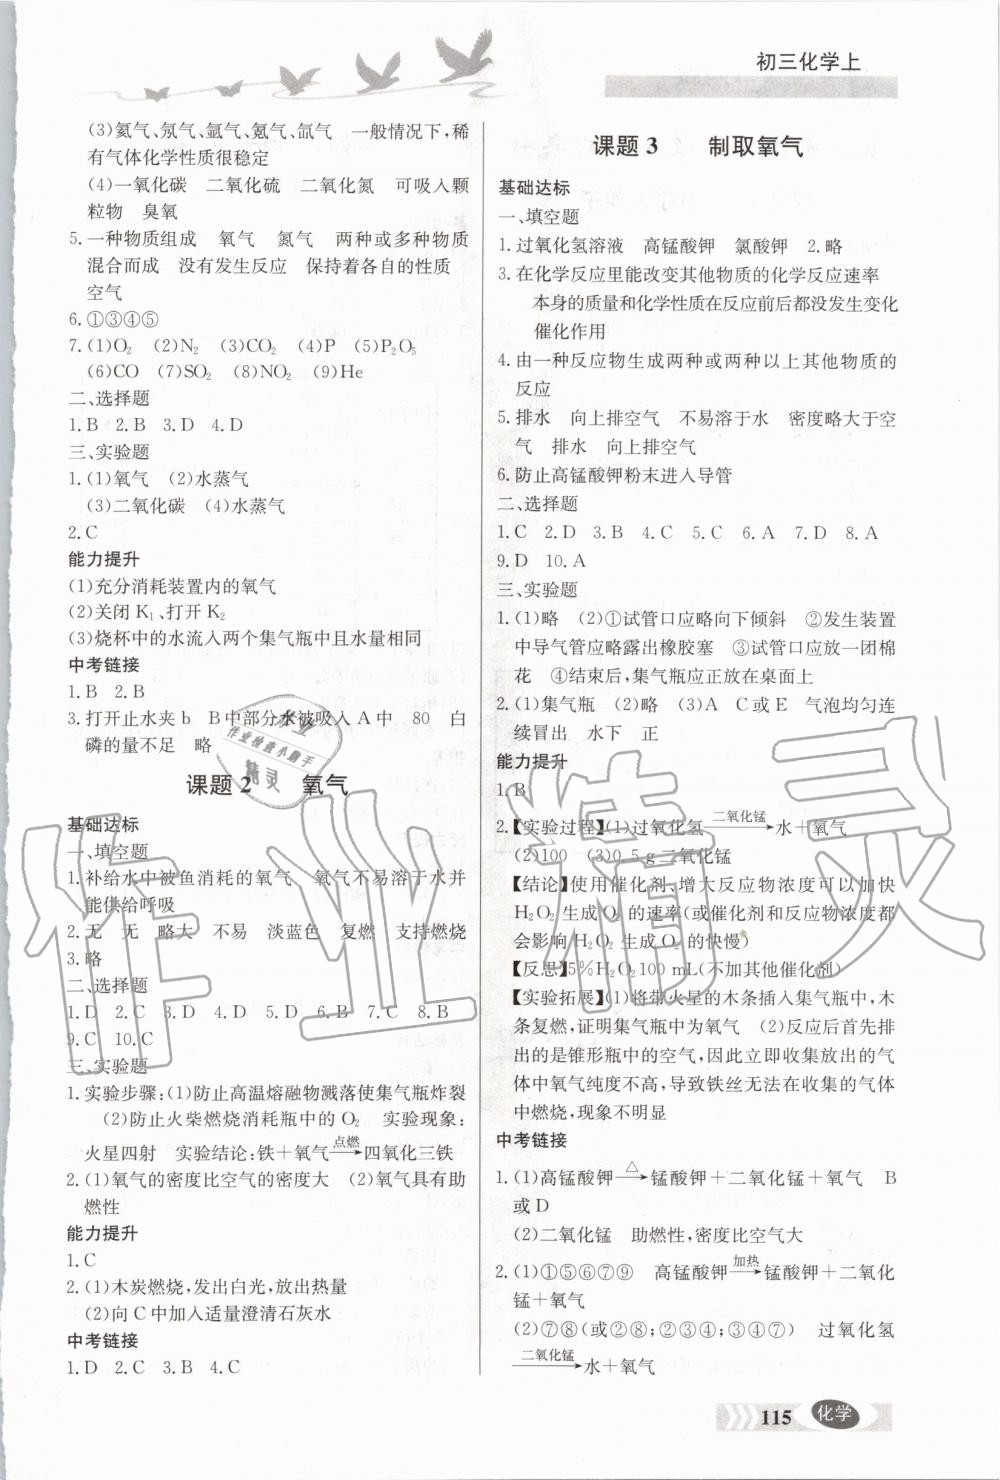 初三化学上
(3)氦气、氖气、氩气、氪气、氙气　一般情况下,稀
有气体化学性质很稳定
(4)一氧化碳　二氧化硫　二氧化氮　可吸入颗
粒物　臭氧
5.一种物质组成　氧气　氮气　两种或多种物质
混合而成　没有发生反应　保持着各自的性质
空气
6.①③④⑤
7.(1)O₂　(2)N₂　(3)CO₂　(4)P　(5)P₂O₅
(6)CO　(7)SO₂　(8)NO₂　(9)He
二、选择题
1.B　2.B　3.D　4.D
三、实验题
1.(1)氧气　(2)水蒸气
(3)二氧化碳　(4)水蒸气
2.C
能力提升
(1)充分消耗装置内的氧气
(2)关闭K₁、打开K₂
(3)烧杯中的水流入两个集气瓶中且水量相同
中考链接
1.B　2.B
3.打开止水夹b　B中部分水被吸入A中　80　白
磷的量不足　略
课题2　氧气
基础达标
一、填空题
1.补给水中被鱼消耗的氧气　氧气不易溶于水并
能供给呼吸
2.无　无　略大　不易　淡蓝色　复燃　支持燃烧
3.略
二、选择题
1.D　2.C　3.D　4.D　5.D　6.B　7.C　8.B
9.C　10.C
三、实验题
1.实验步骤:(1)防止高温熔融物溅落使集气瓶炸裂
(2)防止火柴燃烧消耗瓶中的O₂　实验现象:
火星四射　实验结论:铁+氧气 点燃→ 四氧化三铁
2.(1)氧气的密度比空气的密度大　(2)氧气具有助
燃性
能力提升
1.C
2.(1)木炭燃烧,发出白光,放出热量
(2)向C中加入适量澄清石灰水
中考链接
1.D　2.C　3.B　4.C
课题3　制取氧气
基础达标
一、填空题
1.过氧化氢溶液　高锰酸钾　氯酸钾　2.略
3.在化学反应里能改变其他物质的化学反应速率
本身的质量和化学性质在反应前后都没发生变化
催化作用
4.由一种反应物生成两种或两种以上其他物质的
反应
5.排水　向上排空气　不易溶于水　密度略大于空
气　排水　向上排空气
6.防止高锰酸钾粉末进入导管
二、选择题
1.C　2.D　3.B　4.C　5.C　6.A　7.D　8.A
9.D　10.A
三、实验题
1.(1)略　(2)①试管口应略向下倾斜　②发生装置
中导气管应略露出橡胶塞　③试管口应放一团棉
花　④结束后,集气瓶应正放在桌面上
2.(1)集气瓶　(2)略　(3)A　C或E　气泡均匀连
续冒出　水下　正
能力提升
1.B
2.【实验过程】(1)过氧化氢 二氧化锰→ 水+氧气
(2)100　(3)0.5 g二氧化锰
【结论】使用催化剂、增大反应物浓度可以加快
H₂O₂生成O₂的速率(或催化剂和反应物浓度都
会影响H₂O₂生成O₂的快慢)
【反思】5%H₂O₂100 mL(不加其他催化剂)
【实验拓展】(1)将带火星的木条插入集气瓶中,木
条复燃,证明集气瓶中为氧气　(2)反应后首先排
出的是锥形瓶中的空气,因此立即收集放出的气
体中氧气纯度不高,导致铁丝无法在收集的气体
中燃烧,现象不明显
中考链接
1.(1)高锰酸钾 △→ 锰酸钾+二氧化锰+氧气　B
或D
(2)二氧化锰　助燃性,密度比空气大
2.(1)①⑤⑥⑦⑨　高锰酸钾 加热→ 锰酸钾+二氧化
锰+氧气
(2)⑦⑧(或②⑧;②③④;③④⑦)　过氧化氢
二氧化锰→ 水+氧气
115 化学
作业精灵
作业
作业检查小助手
精灵